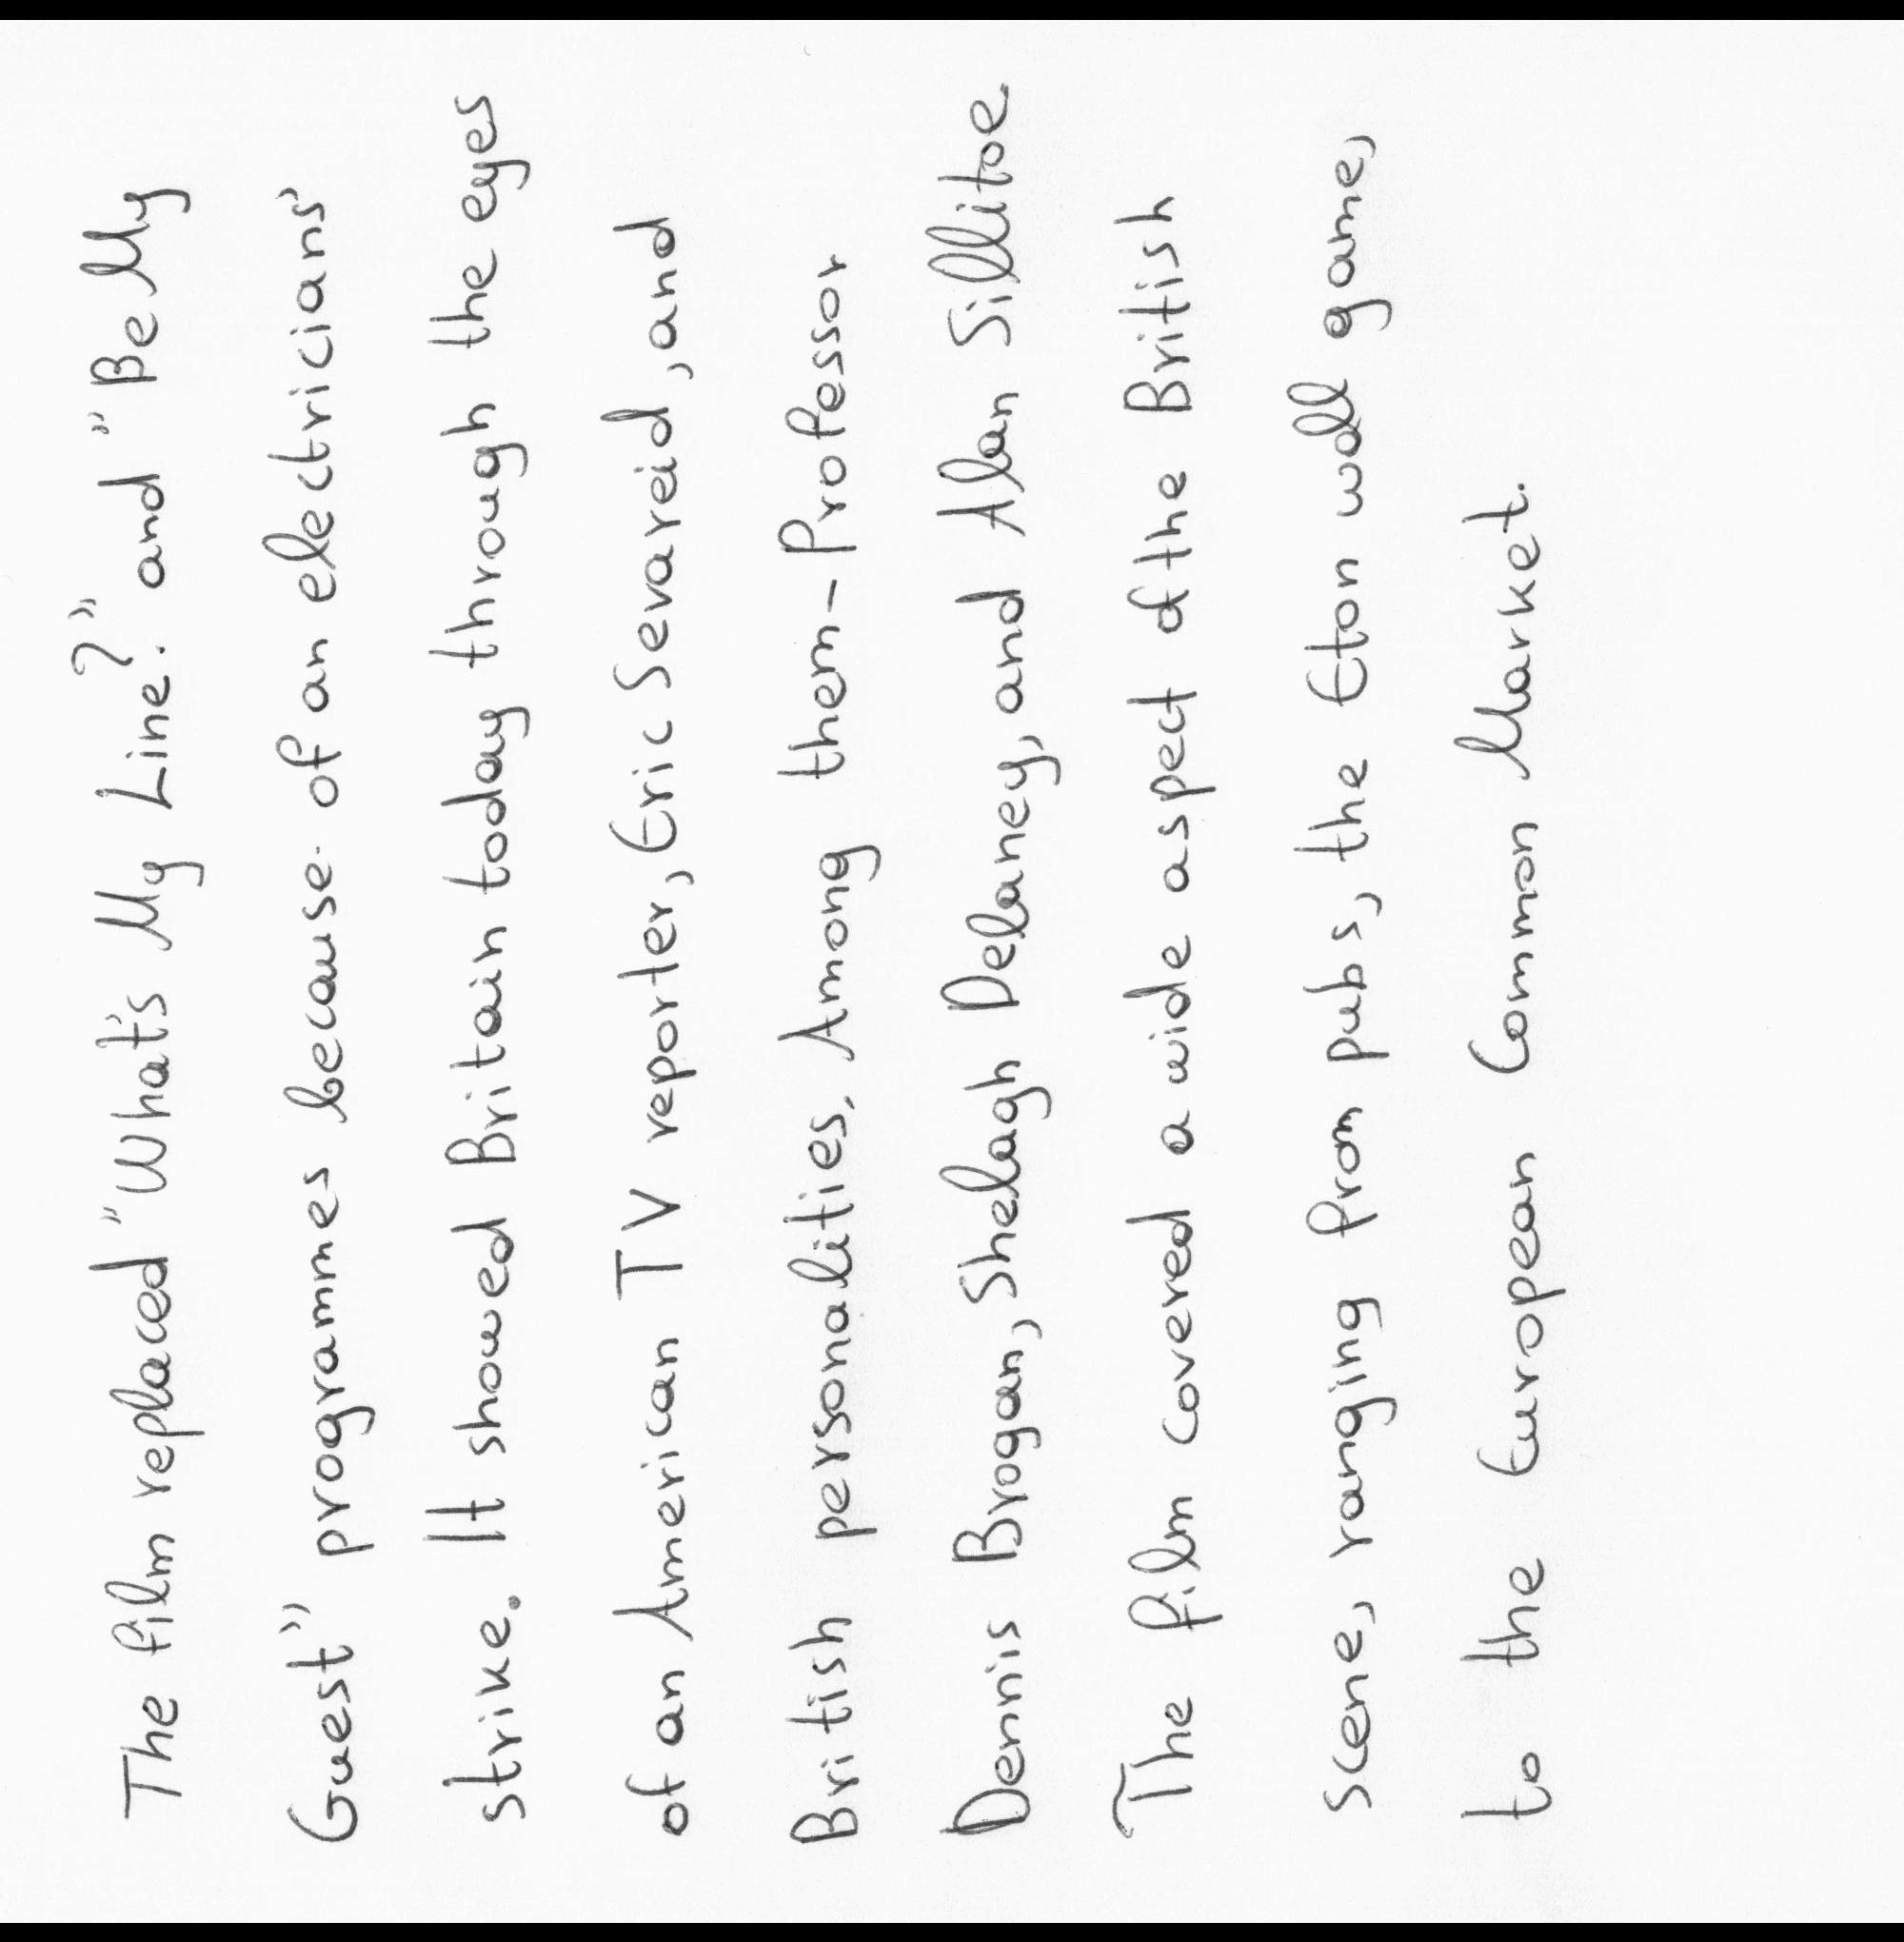 The film replaced "What's My Line?" and "Be My
Guest" programmes because of an electricians'
strike. It showed Britain today through the eyes
of an American TV reporter, Eric Sevareid, and
British personalities. Among them - Professor
Dennis Brogan, Shelagh Delaney, and Alan Sillitoe.
The film covered a wide aspect of the British
scene, ranging from pubs, the Eton wall game,
to the European Common Market.